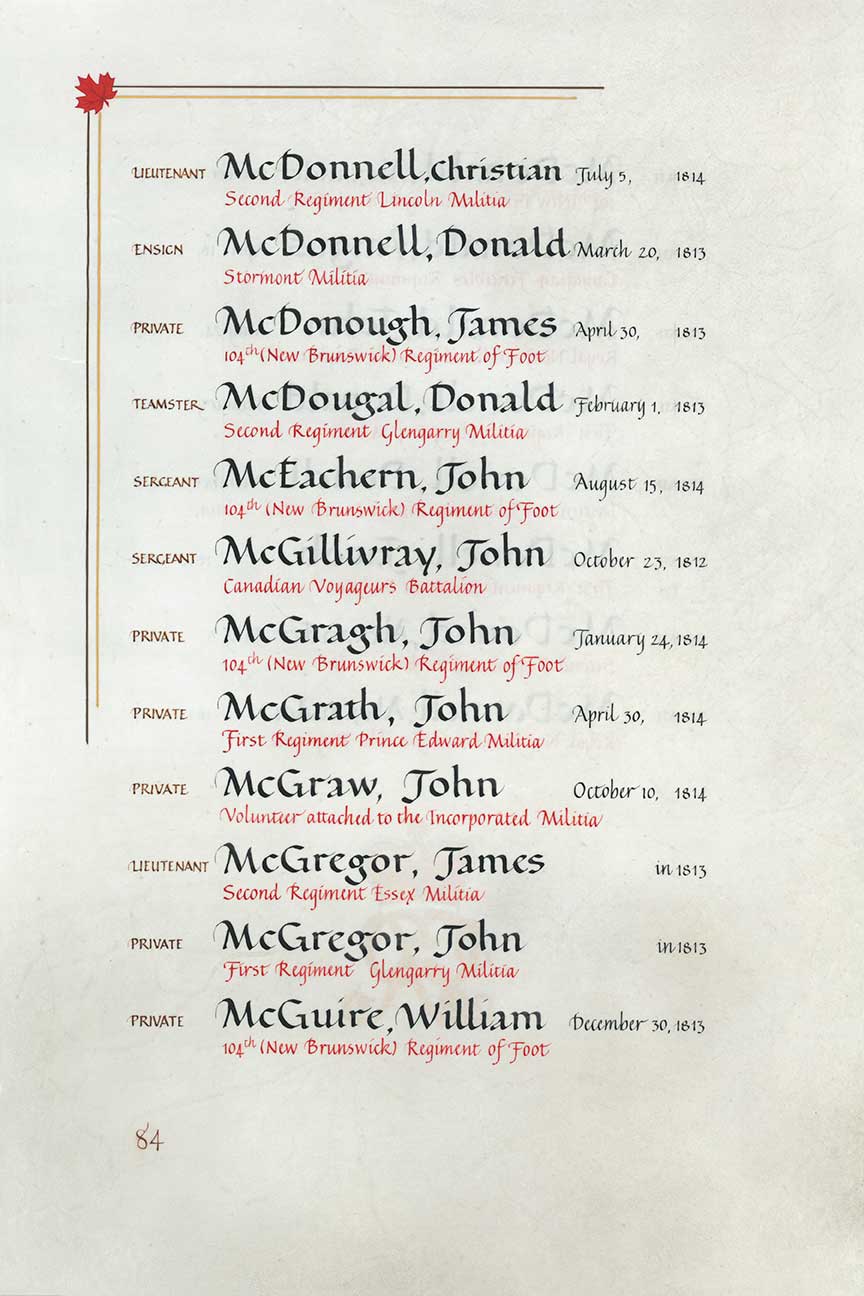 LIEUTENANT McDonnell, Christian July 5, 1814
Second Regiment Lincoln Militia
ENSIGN McDonnell, Donald March 20, 1813
Stormont Militia
PRIVATE McDonough, James April 30, 1813
104th (New Brunswick) Regiment of Foot
TEAMSTER McDougal, Donald February 1, 1813
Second Regiment Glengarry Militia
SERGEANT McEachern, John August 15, 1814
104th (New Brunswick) Regiment of Foot
SERGEANT McGillivray, John October 23, 1812
Canadian Voyageurs Battalion
PRIVATE McGragh, John January 24, 1814
104th (New Brunswick) Regiment of Foot
PRIVATE McGrath, John April 30, 1814
First Regiment Prince Edward Militia
PRIVATE McGraw, John October 10, 1814
Volunteer attached to the Incorporated Militia
LIEUTENANT McGregor, James in 1813
Second Regiment Essex Militia
PRIVATE McGregor, John in 1813
First Regiment Glengarry Militia
PRIVATE McGuire, William December 30, 1813
104th (New Brunswick) Regiment of Foot
84